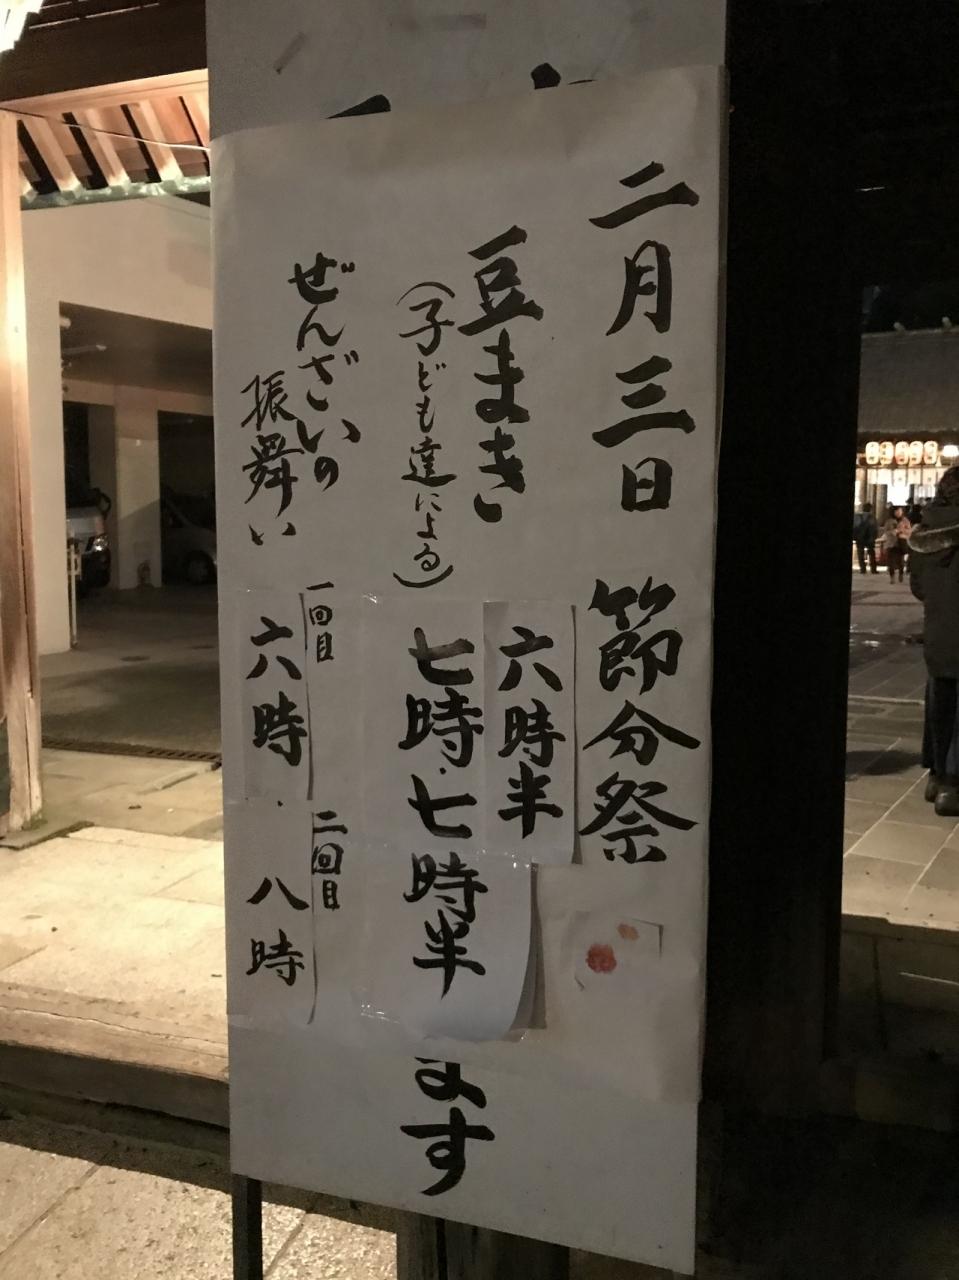 二月三日 節分祭
豆まき 六時半
(子ども達による) 七時・七時半
ます
ぜんざいの
振舞い
一回目 六時・
二回目 八時